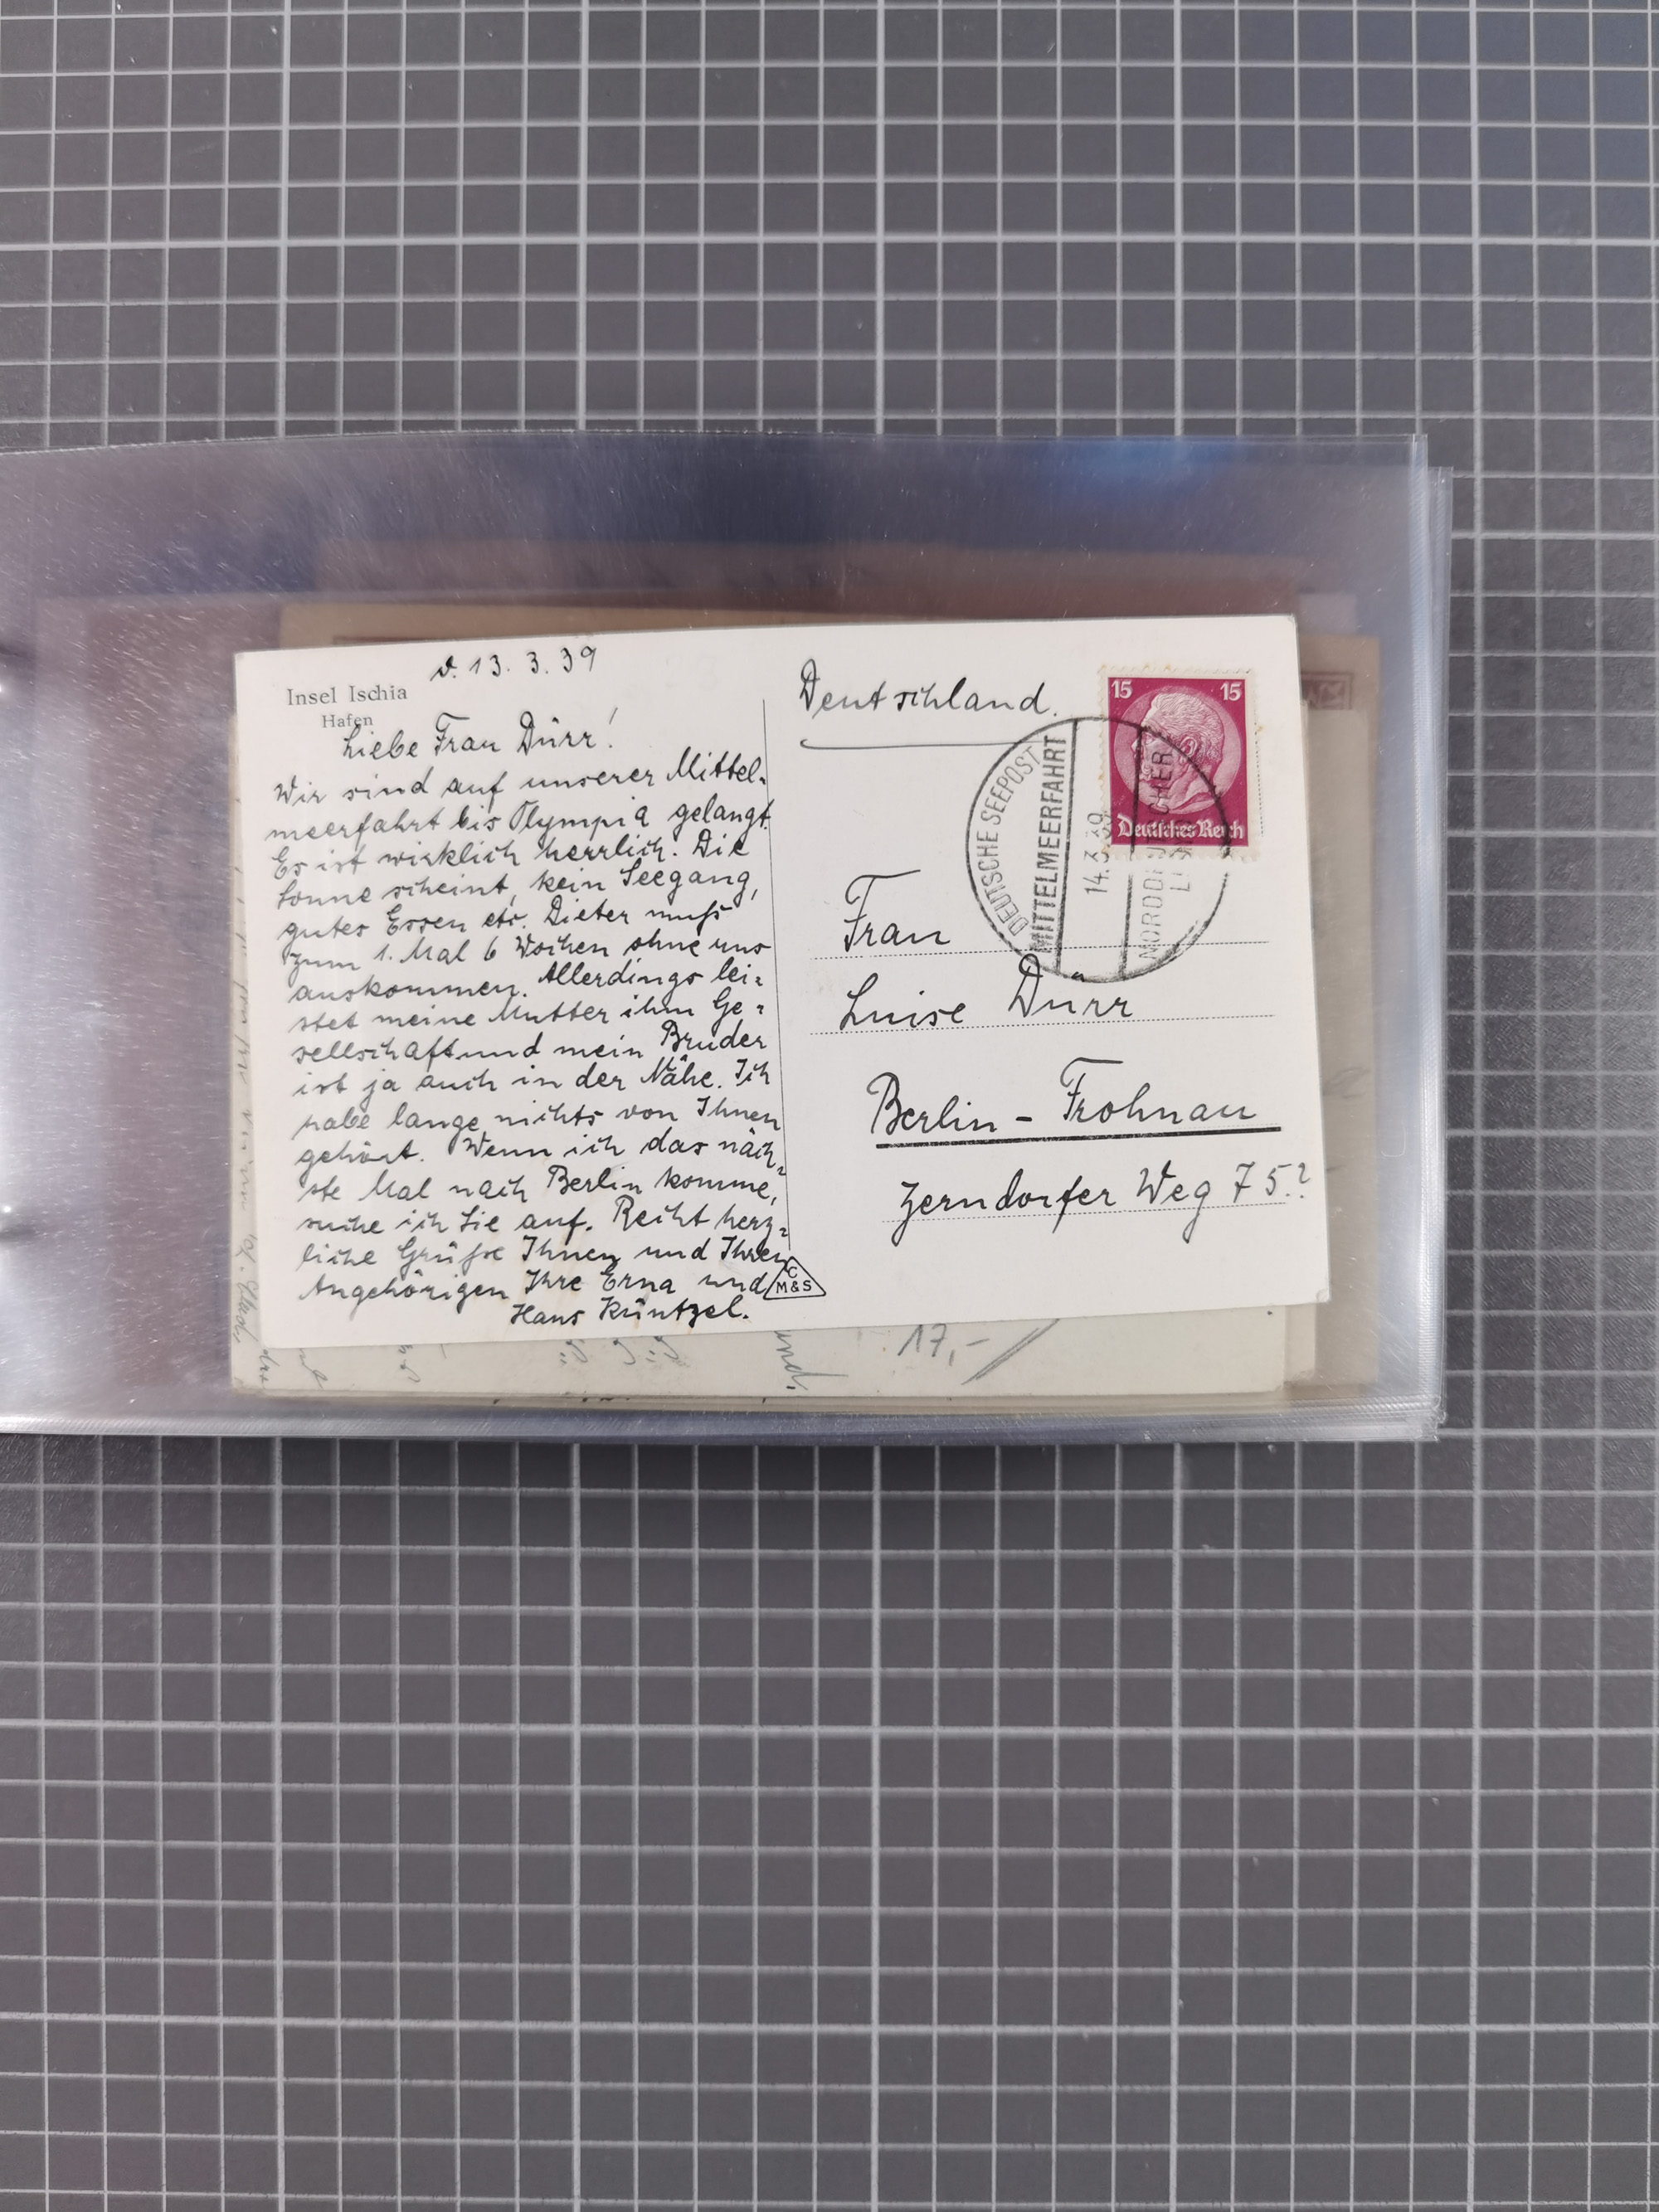 d. 13. 3. 39
Insel Ischia
Hafen
Liebe Frau Dürr!
Wir sind auf unserer Mittel-
meerfahrt bis Olympia gelangt.
Es ist wirklich herrlich. Die
Sonne scheint, kein Seegang,
gutes Essen etc. Dieter muß
zum 1. Mal 6 Wochen ohne uns
auskommen. Allerdings lei-
stet meine Mutter ihm Ge-
sellschaft und mein Bruder
ist ja auch in der Nähe. Ich
habe lange nichts von Ihnen
gehört. Wenn ich das näch-
ste Mal nach Berlin komme,
suche ich Sie auf. Recht herz-
liche Grüße Ihnen und Ihren
Angehörigen Ihre Erna und
Hans Küntzel.
C
M&S
Deutschland.
15 15
Deutsches Reich
DEUTSCHE SEEPOST
MITTELMEERFAHRT
14.3.39
Frau
Luise Dürr
Berlin - Frohnau
Zerndorfer Weg 75?
17,-
und.